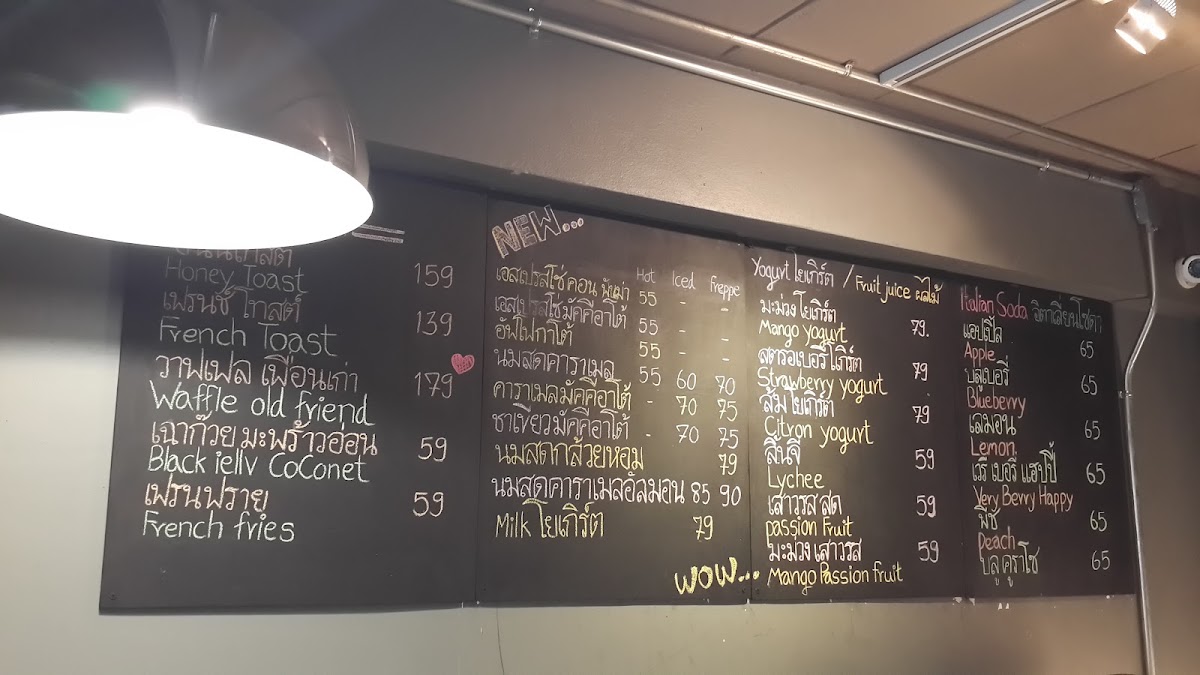 Honey Toast 159
เฟรนช์ โทสต์
French Toast 139
วาฟเฟล เพื่อนเก่า
Waffle old friend 179
เฉาก๊วย มะพร้าวอ่อน
Black jelly CoConet 59
เฟรนฟราย
French fries 59
NEW...
Hot Iced freppe
เอสเปรสโซ่ คอน พันน่า 55 - -
เอสเปรสโซ่ มัคคีอาโต้ 55 - -
อัฟโฟกาโต้ 55 - -
นมสดคาราเมล 55 60 70
คาราเมลมัคคีอาโต้ - 70 75
ชาเขียวมัคคีอาโต้ - 70 75
นมสดกล้วยหอม 79
นมสดคาราเมลอัลมอน 85 90
Milk โยเกิร์ต 79
WOW...
Yogurt โยเกิร์ต / Fruit juice ผลไม้
มะม่วง โยเกิร์ต
Mango yogurt 79.
สตรอเบอรี่ โยเกิร์ต
Strawberry yogurt 79
ส้ม โยเกิร์ต
Citron yogurt 79
ลิ้นจี่
Lychee 59
เสาวรส สด
passion Fruit 59
มะม่วง เสาวรส
Mango Passion fruit 59
Italian Soda อิตาเลี่ยนโซดา
แอปเปิ้ล
Apple 65
บลูเบอรี่
Blueberry 65
เลมอน
Lemon 65
เวรี่ เบอรี่ แฮปปี้
Very Berry Happy 65
พีช
peach 65
บลู คูราโซ 65